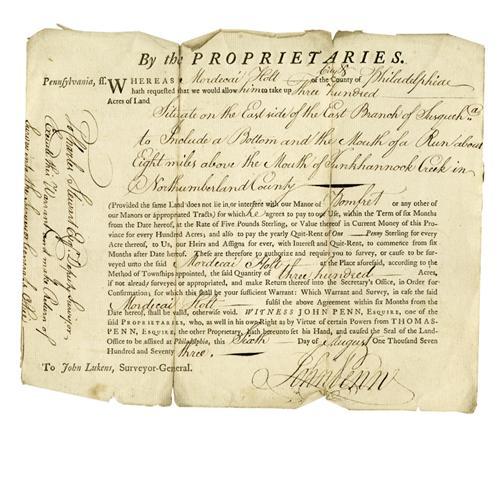 By the PROPRIETARIES.
Pennsylvania, ss. WHEREAS Mordecai Holt of the City & County of Philadelphia
hath requested that we would allow him to take up three hundred
Acres of Land
Situate on the East side of the East Branch of Susqueha.
to Include a Bottom and the Mouth of a Run about
Eight miles above the Mouth of Tunkhannook Creek in
Northumberland County
(Provided the same Land does not lie in, or interfere with our Manor of Pomfret or any other of
our Manors or appropriated Tracts) for which he agrees to pay to our Use, within the Term of six Months
from the Date hereof, at the Rate of Five Pounds Sterling, or Value thereof in Current Money of this Pro
vince for every Hundred Acres; and also to pay the yearly Quit-Rent of One Penny Sterling for every
Acre thereof, to Us, our Heirs and Assigns for ever, with Interest and Quit-Rent, to commence from six
Months after Date hereof: These are therefore to authorize and require you to survey, or cause to be sur-
veyed unto the said Mordecai Holt at the Place aforesaid, according to the
Method of Townships appointed, the said Quantity of three hundred Acres,
if not already surveyed or appropriated, and make Return thereof into the Secretary's Office, in Order for
Confirmation; for which this shall be your sufficient Warrant: Which Warrant and Survey, in case the said
Mordecai Holt fulfil the above Agreement within six Months from the
Date hereof, shall be valid, otherwise void. WITNESS JOHN PENN, ESQUIRE, one of the
said PROPRIETARIES, who, as well in his own Right as by Virtue of certain Powers from THOMAS
PENN, ESQUIRE, the other Proprietary, hath hereunto set his Hand, and caused the Seal of the Land-
Office to be affixed at Philadelphia, this Sixth Day of August One Thousand Seven
Hundred and Seventy three.
To John Lukens, Surveyor-General.
John Penn
To Charles Stewart Esqr. Deputy Surveyor
Execute this Warrant and make Return of
Survey into the Surveyor General's Office